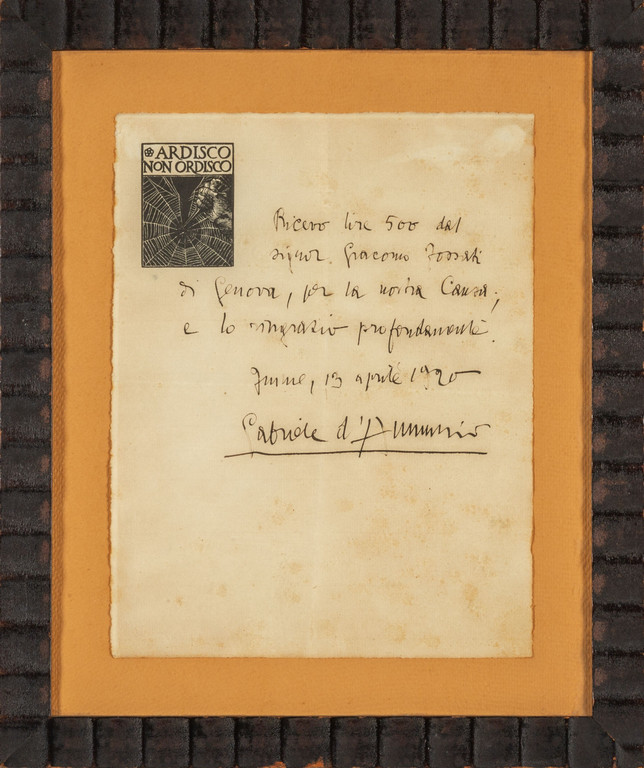 ARDISCO
NON ORDISCO
Ricevo lire 500 dal
signor Giacomo Fossati
di Genova, per la nostra Causa;
e lo ringrazio profondamente.
Fiume, 13 aprile 1920
Gabriele d'Annunzio